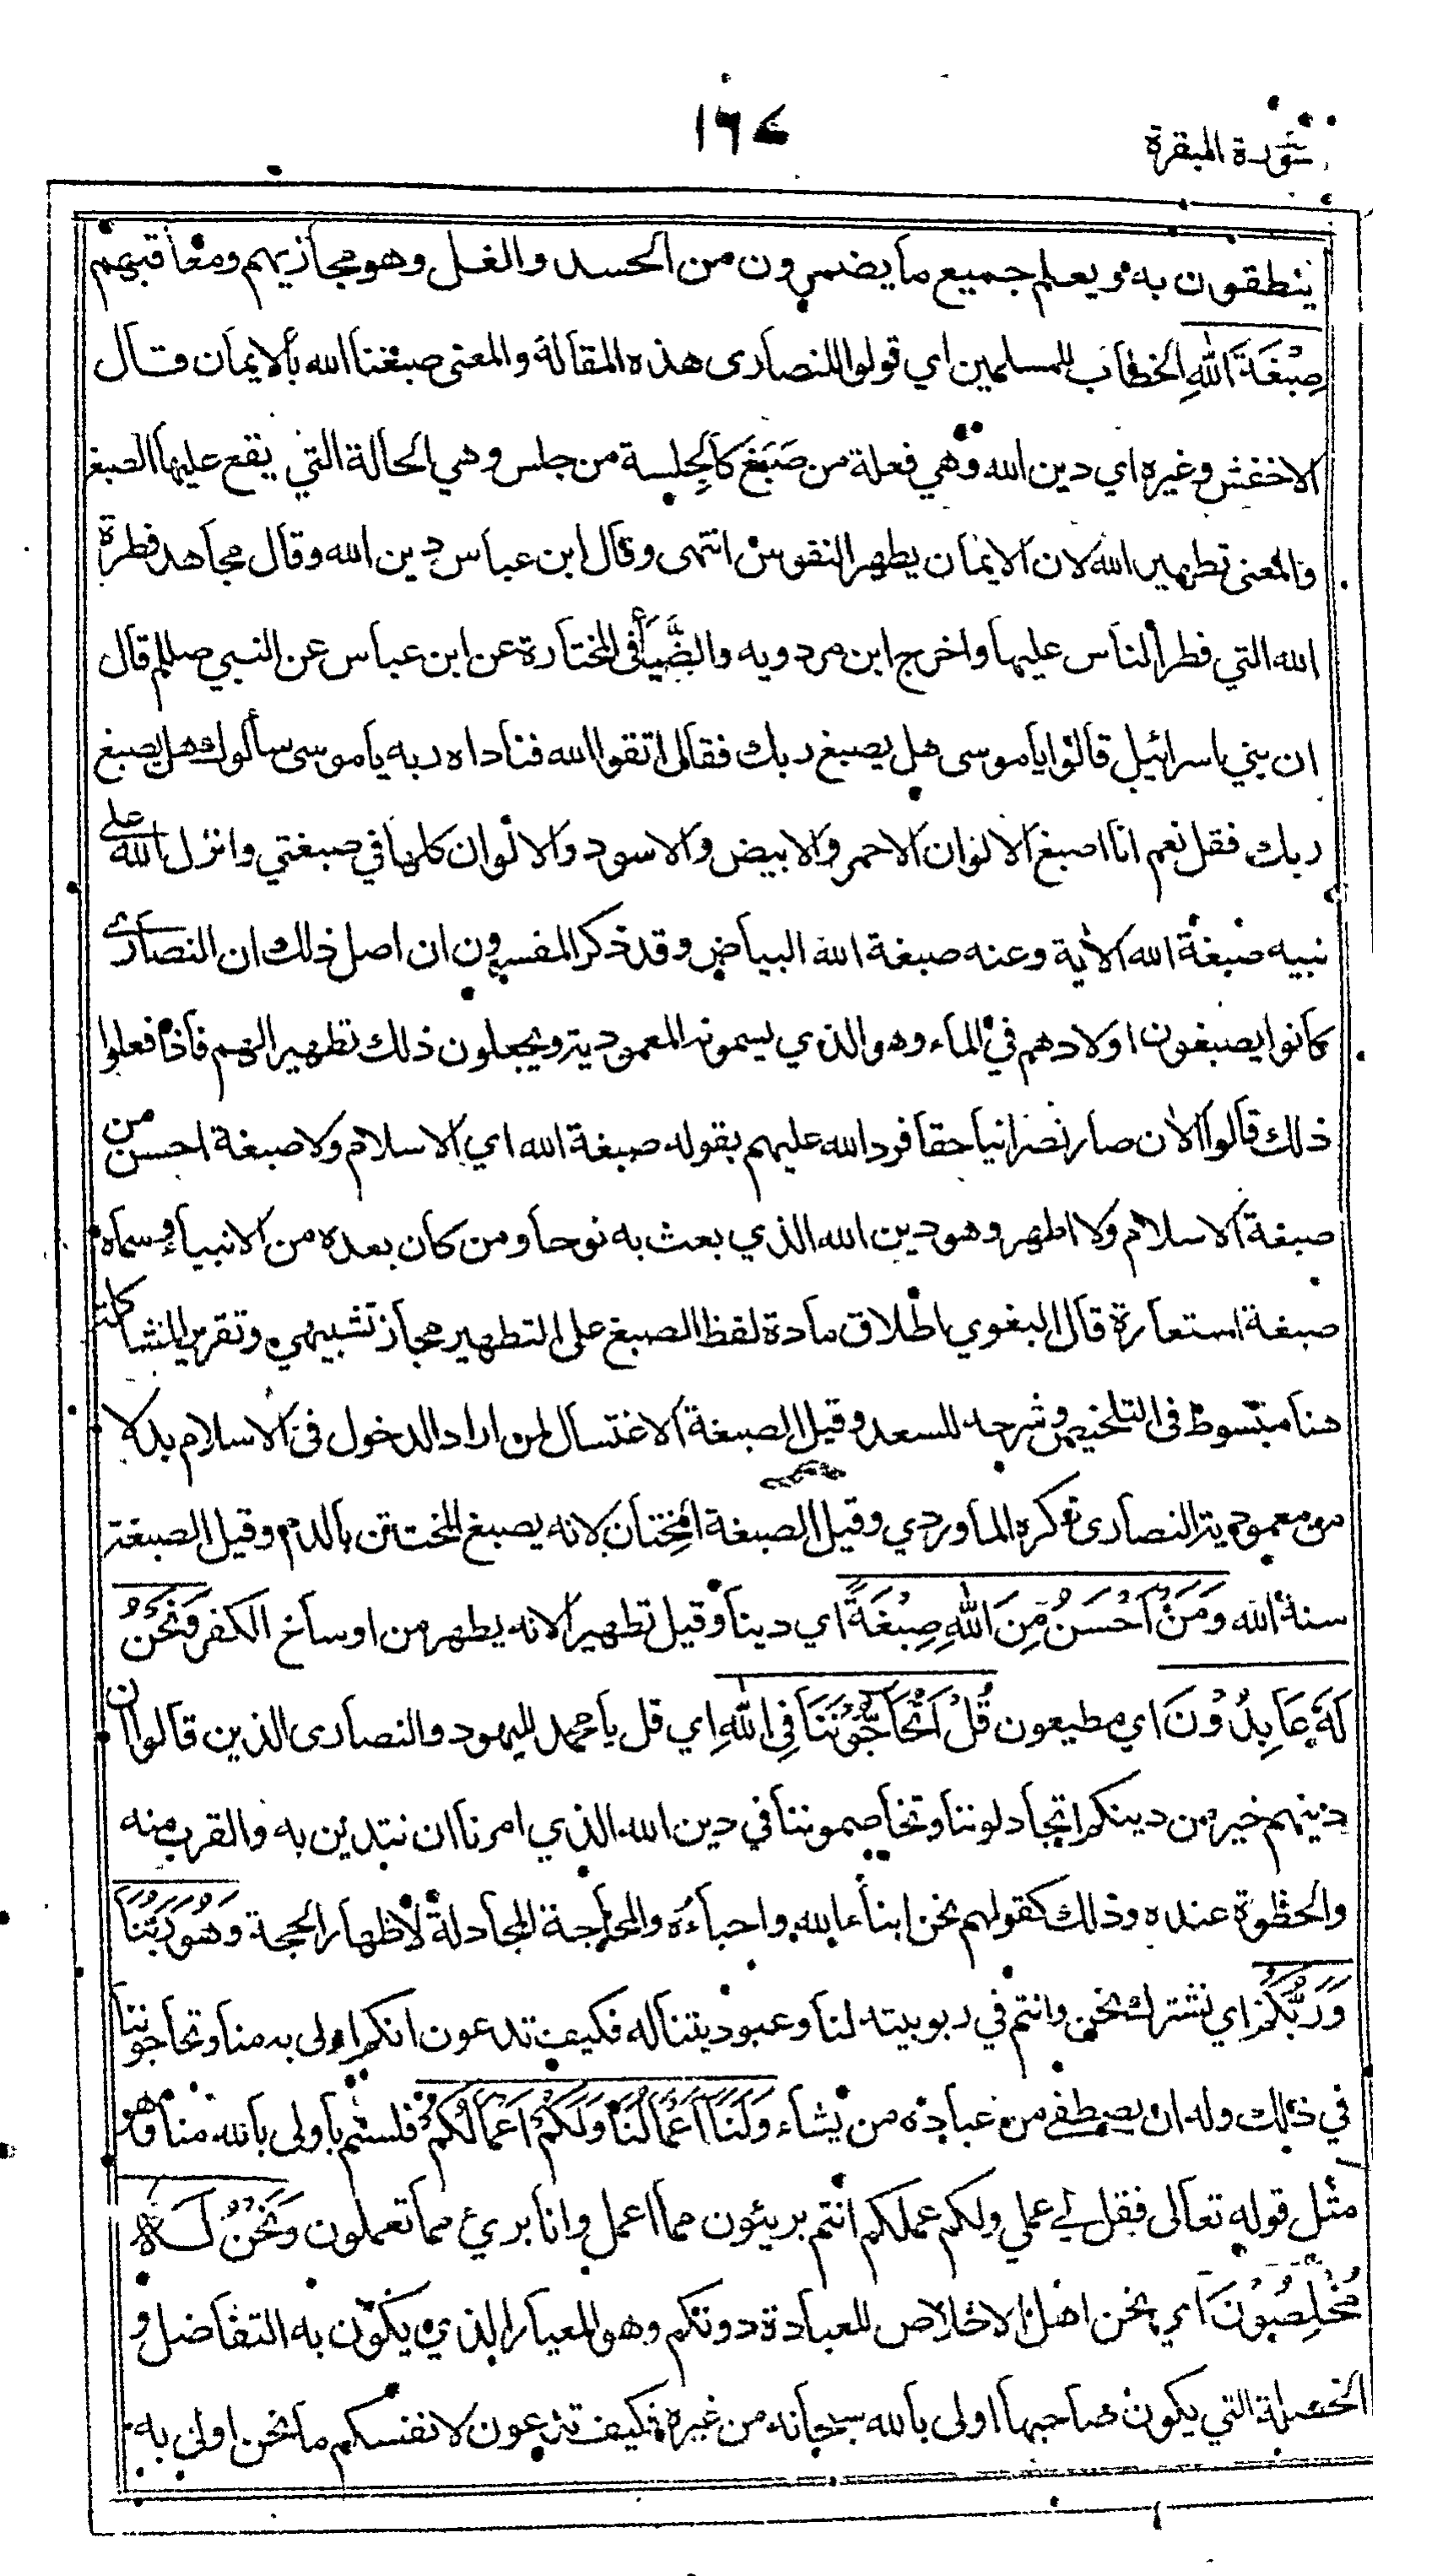 سورة البقرة
١٦٧
ينطقون به ويعلم جميع ما يضمرون من الحسد والغل وهو مجازيهم ومعاقبهم
صِبْغَةَ اللهِ الخطاب للمسلمين اي قولوا للنصارى هذه المقالة والمعنى صبغنا الله بالايمان قال
الاخفش وغيره اي دين الله وهي فعلة من صَبَغَ كالجِلسة من جلس وهي الحالة التي يقع عليها الصبغ
والمعنى تطهير الله لان الايمان يطهر النفوس انتهى وقال ابن عباس دين الله وقال مجاهد فطرة
الله التي فطر الناس عليها واخرج ابن مردويه والضِّيَأ في المختارة عن ابن عباس عن النبي صللم قال
ان بني اسرائيل قالوا يا موسى هل يصبغ ربك فقال اتقوا الله فناداه ربه يا موسى سألوك هل يصبغ
ربك فقل نعم انا اصبغ الالوان الاحمر والابيض والاسود والالوان كلها في صبغتي وانزل الله على
نبيه صبغة الله الأية وعنه صبغة الله البياض وقد ذكر المفسرون ان اصل ذلك ان النصارى
كانوا يصبغون اولادهم في الماء وهو الذي يسمونه المعمودية ويجعلون ذلك تطهيرا لهم فاذا فعلوا
ذلك قالوا الأن صار نصرانيا حقا فرد الله عليهم بقوله صبغة الله اي الاسلام ولا صبغة احسن من
صبغة الاسلام ولا اطهر وهو دين الله الذي بعث به نوحا ومن كان بعده من الانبياء وسماه
صبغة استعارة قال البغوي اطلاق مادة لفظ الصبغ على التطهير مجاز تشبيهي وتقرير المشاكلة
هنا مبسوط في التلخيص وشرحه للسعد وقيل الصبغة الاغتسال لمن اراد الدخول في الاسلام بدلا
من معمودية النصارى ذكره الماوردي وقيل الصبغة الختان لانه يصبغ المختتن بالدم وقيل الصبغة
سنة الله وَمَنْ اَحْسَنُ مِنَ اللهِ صِبْغَةً اي دينا وقيل تطهيرا لانه يطهر من اوساخ الكفر وَنَحْنُ
لَهٗ عَابِدُوْنَ اي مطيعون قُلْ اَتُحَاجُّوْنَنَا فِي اللهِ اي قل يا محمد لليهود والنصارى الذين قالوا ان
دينهم خير من دينكم اتجادلوننا وتخاصموننا في دين الله الذي امرنا ان نتدين به والقرب منه
والحظوة عنده وذلك كقولهم نحن ابناء الله واحباءه والمحاججة المجادلة لاظهار الحجة وَهُوَ رَبُّنَا
وَرَبُّكُمْ اي نشترك نحن وانتم في ربوبيته لنا وعبوديتنا له فكيف تدعون انكم اولى به منا وتحاجوننا
في ذلك وله ان يصطفي من عباده من يشاء وَلَنَا اَعْمَالُنَا وَلَكُمْ اَعْمَالُكُمْ فلستم باولى بالله منا وهو
مثل قوله تعالى فقل لي عملي ولكم عملكم انتم بريئون مما اعمل وانا بريئ مما تعملون وَنَحْنُ لَهٗ
مُخْلِصُوْنَ اي نحن اهل الاخلاص للعبادة دونكم وهو المعيار الذي يكون به التفاضل و
الخصلة التي يكون صاحبها اولى بالله سبحانه من غيره فكيف تدعون لانفسكم ما نحن اولى به